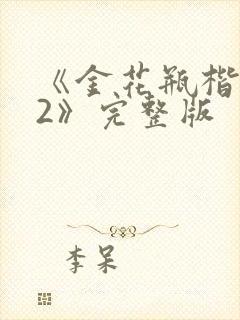 《金花瓶楷
2》完整版
李呆